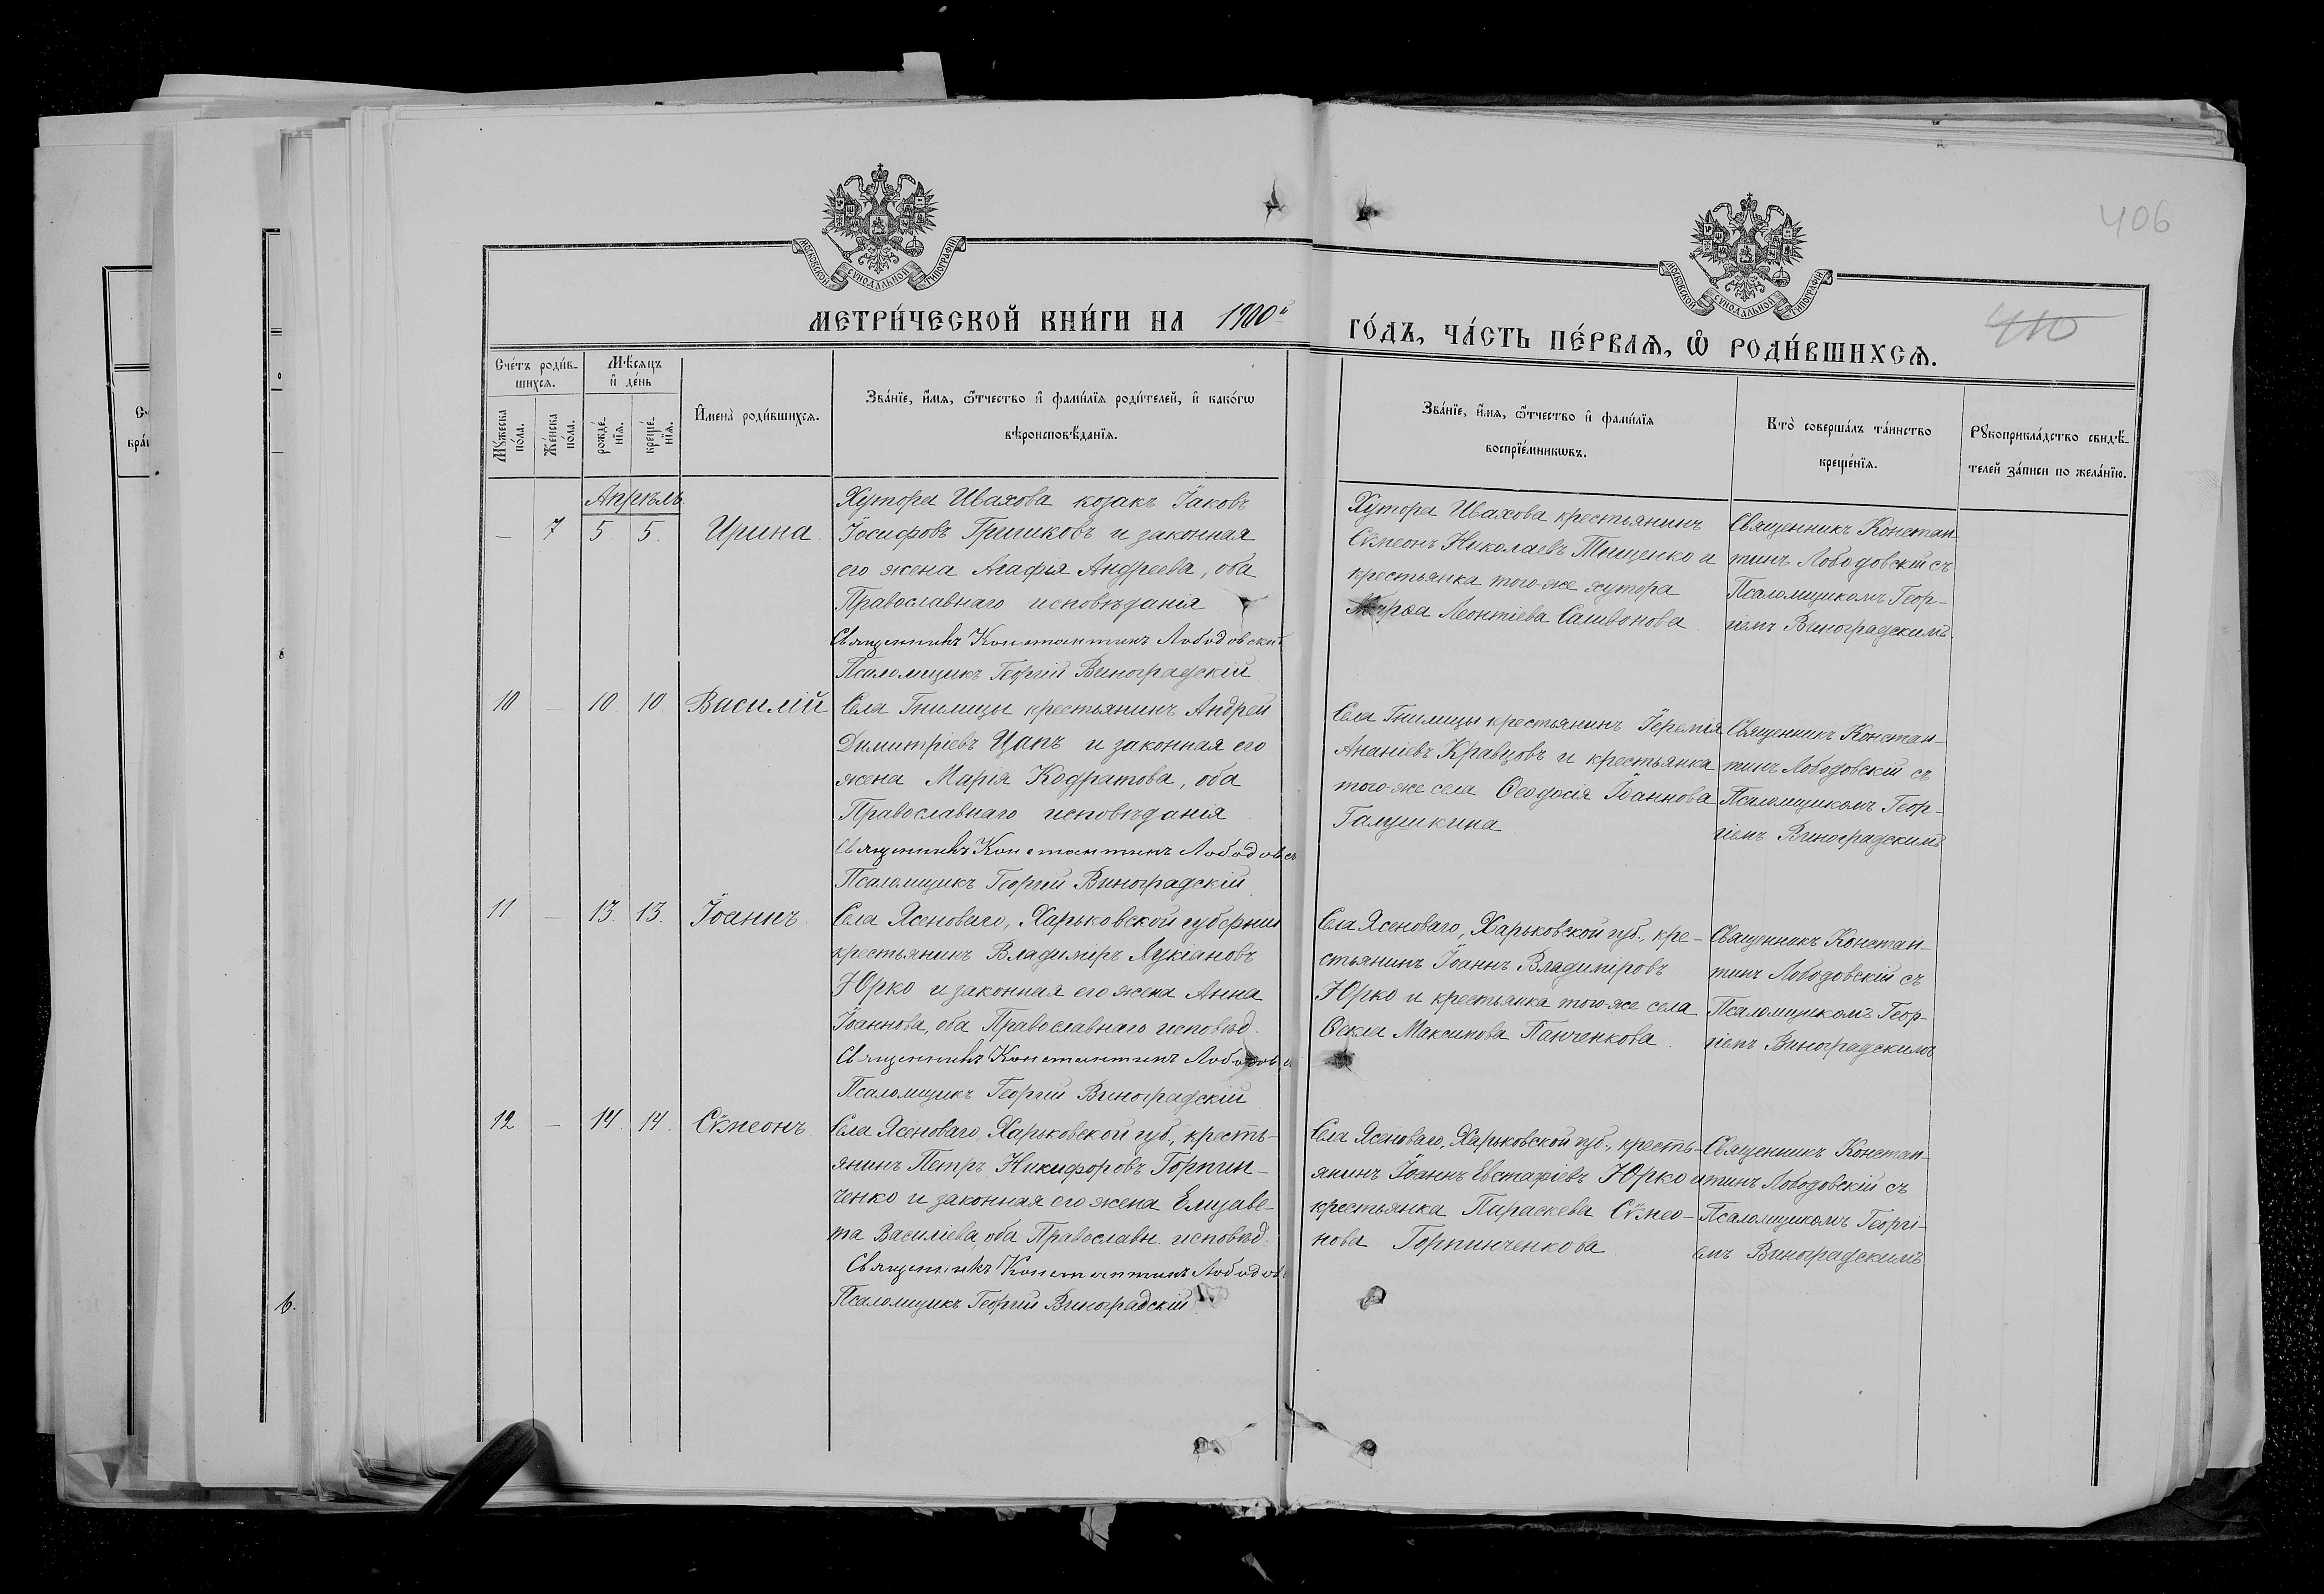 406
МОСКОВСКОЙ СѴНОДАЛЬНОЙ ТИПОГРАФІИ
МОСКОВСКОЙ СѴНОДАЛЬНОЙ ТИПОГРАФІИ
МЕТРИ́ЧЕСКОЙ КНИ́ГИ НА 1900й
ГО́ДЪ, ЧА́СТЬ ПЕ́РВАѦ, Ѡ҆ РОДИ́ВШИХСѦ.
410
Сче́тъ роди́в-
шихсѧ.
Мꙋ́жеска
по́ла.
Же́нска
по́ла.
Мѣ́сѧцъ
и҆ де́нь
рожде́-
нїѧ.
креще́-
нїѧ.
И҆мена̀ роди́вшихсѧ.
Зва́нїе, и҆́мѧ, ѻ҆́тчество и҆ фами́лїѧ роди́телей, и҆ како́гѡ
вѣроисповѣ́данїѧ.
Зва́нїе, и҆́мѧ, ѻ҆́тчество и҆ фами́лїѧ
воспрїе́мникѡвъ.
Кто̀ соверша́лъ та́инство
креще́нїѧ.
Рꙋкоприкла́дство свидѣ́-
телей за́писи по жела́нїю.
Апрѣль
— 7 5 5. Ирина.
Хутора Ивахова козакъ Іаковъ
Іосифовъ Гришковъ и законная
его жена Агафія Андреева, оба
Православнаго исповѣданія
Священникъ Константинъ Лободовскій
Псаломщикъ Георгій Виноградскій
Хутора Ивахова крестьянинъ
Сѷмеонъ Николаевъ Тищенко и
крестьянка того-же хутора
Леонтіева Саливонова
Священникъ Констан-
тинъ Лободовскій съ
Псаломщикомъ Геор-
гіемъ Виноградскимъ.
10 — 10. 10. Василій
Села Гнилицы крестьянинъ Андрей
Димитріевъ Цапъ и законная его
жена Марія Кодратова, оба
Православнаго исповѣданія
Священникъ Константинъ Лободовс
Псаломщикъ Георгій Виноградскій
Села Гнилицы крестьянинъ Іеремія
Ананіевъ Кравцовъ и крестьянка
того-же села Ѳеодосія Іоаннова
Галушкина
Священникъ Констан-
тинъ Лободовскій съ
Псаломщикомъ Геор-
гіемъ Виноградскимъ
11 — 13. 13. Іоаннъ.
Села Ясеноваго, Харьковской губерніи
крестьянинъ Владиміръ Лукіановъ
Юрко и законная его жена Анна
Іоаннова, оба Православнаго исповѣд.
Священникъ Константинъ Лободовс
Псаломщикъ Георгій Виноградскій
Села Ясеноваго, Харьковской губ., кре-
стьянинъ Іоаннъ Владиміровъ
Юрко и крестьянка того-же села
Ѳекла Максимова Панченкова.
Священникъ Констан-
тинъ Лободовскій съ
Псаломщикомъ Геор-
гіемъ Виноградскимъ
12. — 14. 14. Сѷмеонъ
Села Ясеноваго, Харьковской губ., кресть-
янинъ Петръ Никифоровъ Горпин-
ченко и законная его жена Елизаве-
та Василіева, оба Православн. исповѣд.
Священникъ Константинъ Лободов
Псаломщикъ Георгій Виноградскій
Села Ясеноваго, Харьковской губ., кресть-
янинъ Іоаннъ Евстафіевъ Юрко и
крестьянка Параскева Сѷмео-
нова Горпинченкова.
Священникъ Констан-
тинъ Лободовскій съ
Псаломщикомъ Георгі-
емъ Виноградскимъ